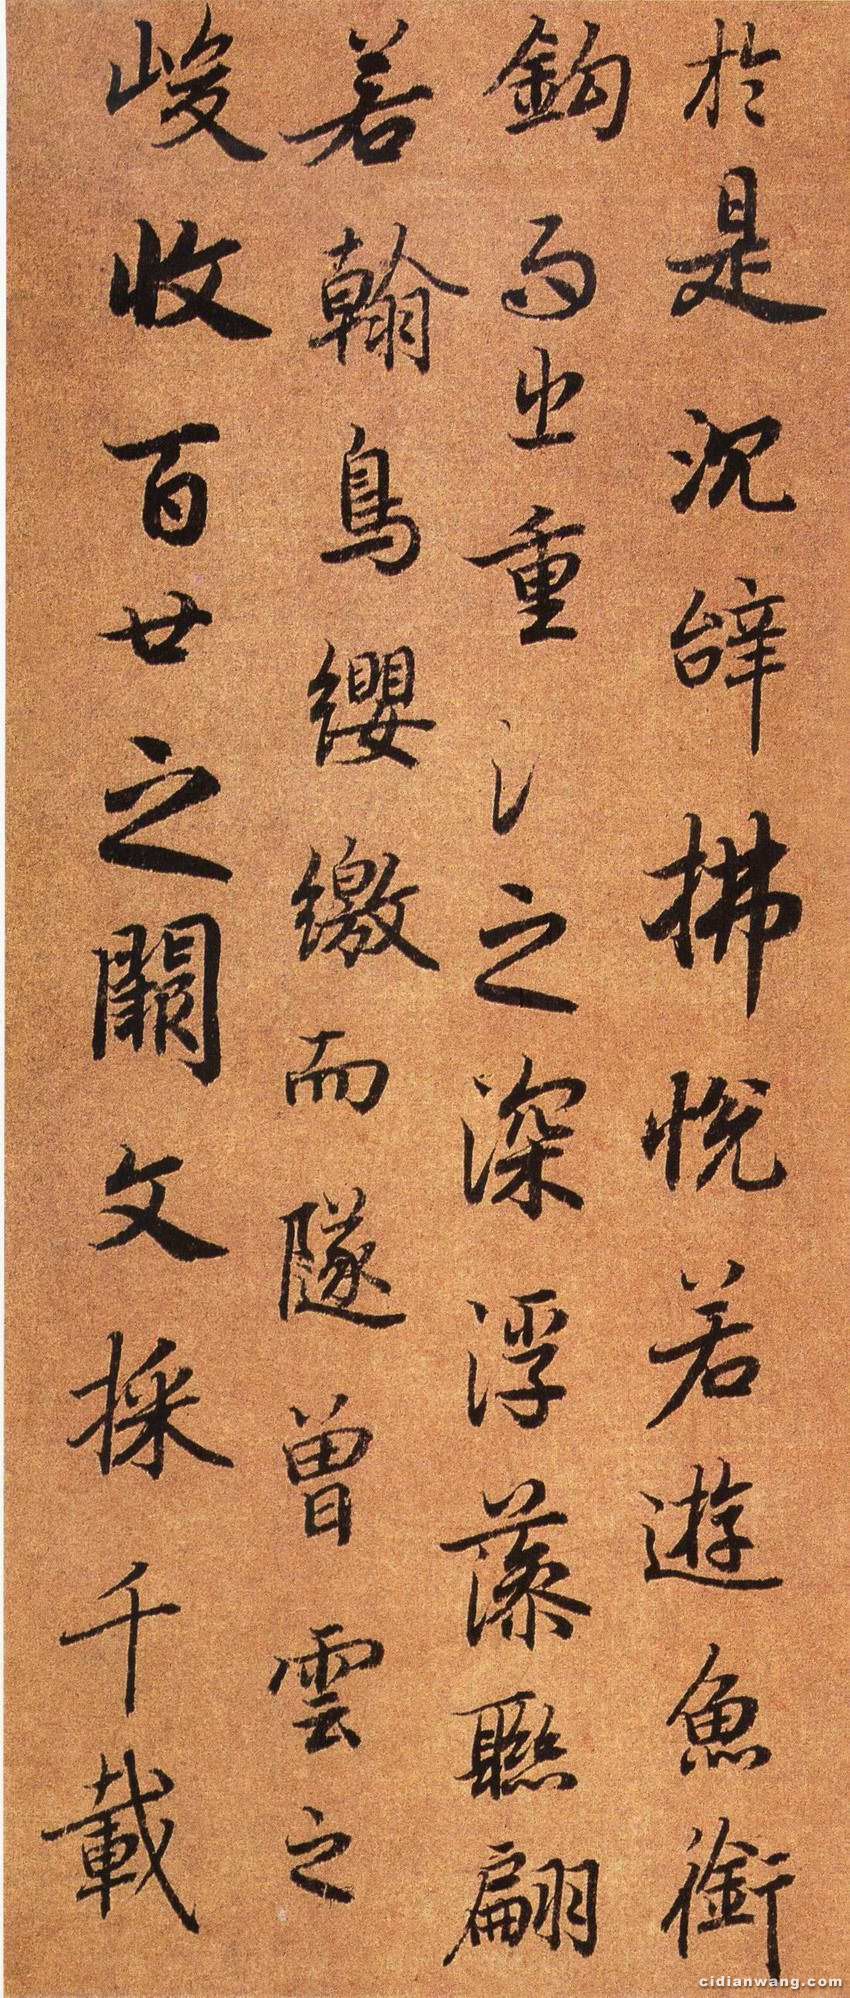 於是沉辝拂悅若遊魚銜
鈎而出重氵之深浮藻聯翩
若翰鳥纓繳而隧曾雲之
峻收百廿之闕文採千載
cidianwang.com